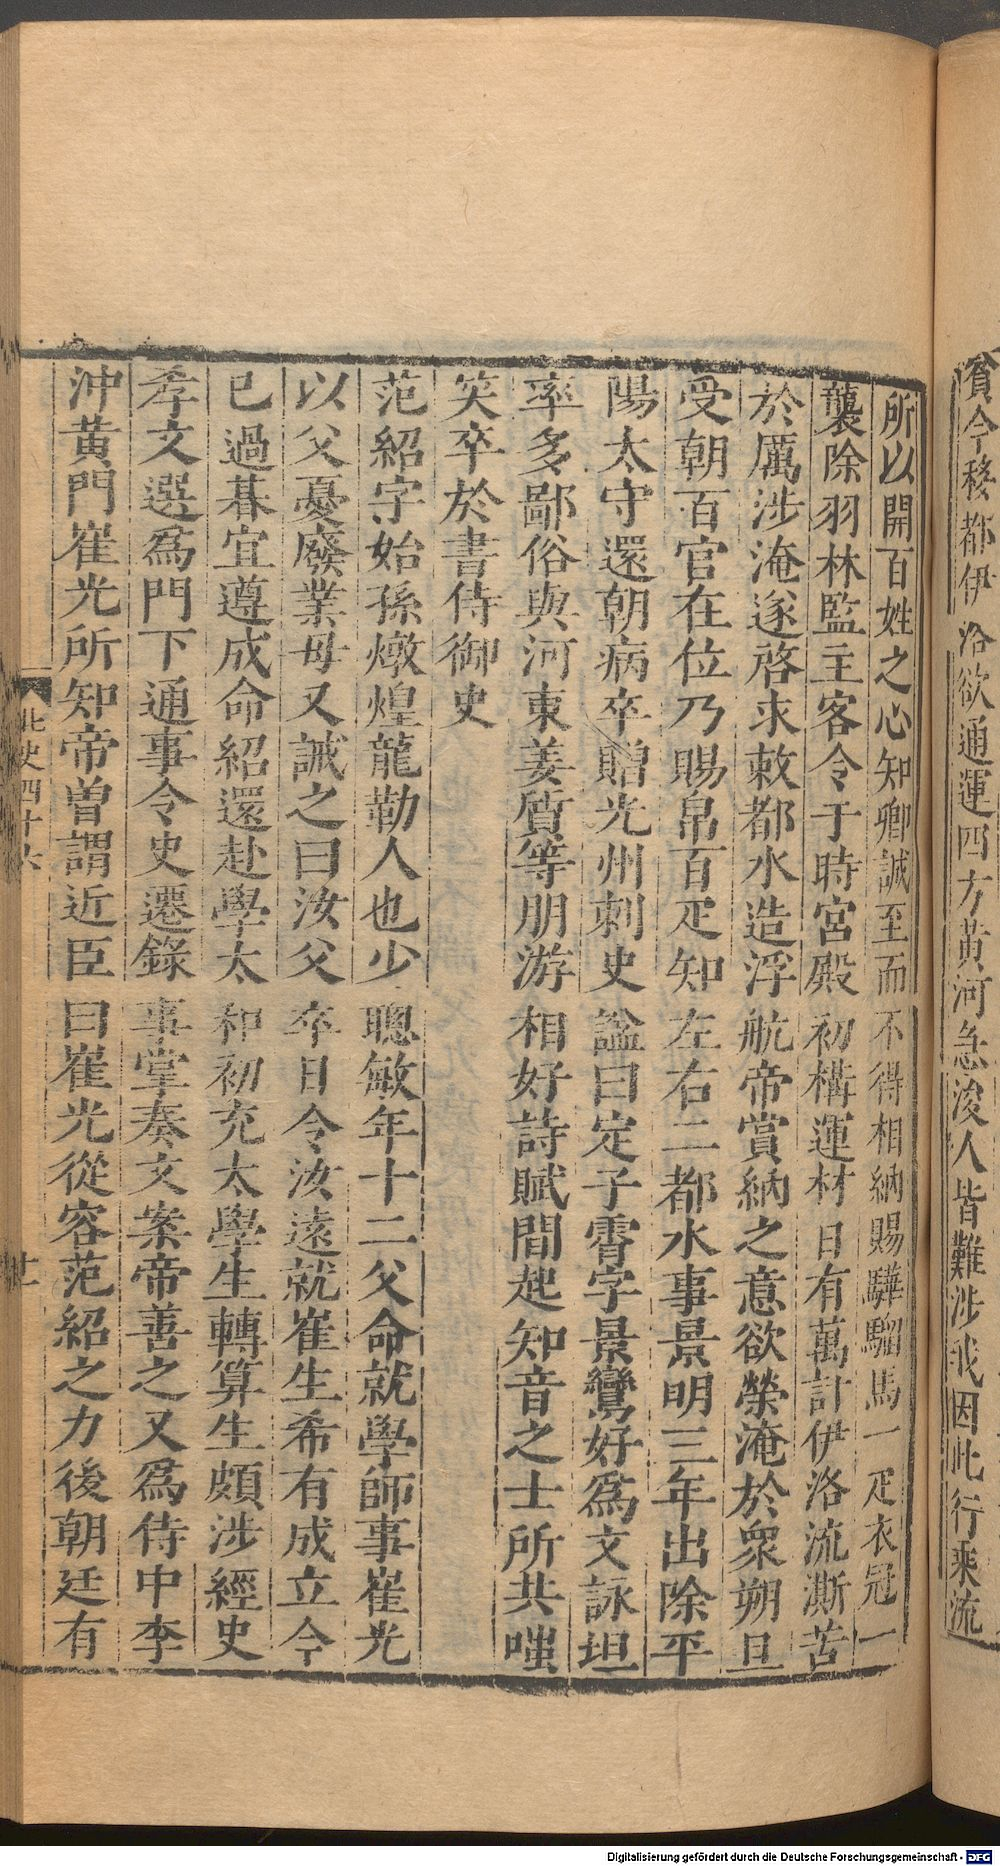 貧今移都伊洛欲通運四方黃河急浚人皆難涉我因此行乘流
所以開百姓之心知卿誠至而不得相納賜驊騮馬一疋衣冠一
襲除羽林監主客令于時宮殿初構運材日有萬計伊洛流澌苦
於厲涉淹遂啓求敕都水造浮航帝賞納之意欲榮淹於衆朔旦
受朝百官在位乃賜帛百疋知左右二都水事景明三年出除平
陽太守還朝病卒贈光州刺史諡曰定子霄字景鸞好爲文詠坦
率多鄙俗與河東姜質等朋游相好詩賦間起知音之士所共嗤
笑卒於書侍御史
范紹字始孫燉煌龍勒人也少聰敏年十二父命就學師事崔光
以父憂廢業母又誡之曰汝父卒日令汝遠就崔生希有成立今
已過朞宜遵成命紹還赴學太和初充太學生轉算生頗涉經史
孝文選爲門下通事令史遷錄事掌奏文案帝善之又爲侍中李
沖黃門崔光所知帝曾謂近臣曰崔光從容范紹之力後朝廷有
北史四十六
廿一
Digitalisierung gefördert durch die Deutsche Forschungsgemeinschaft - DFG